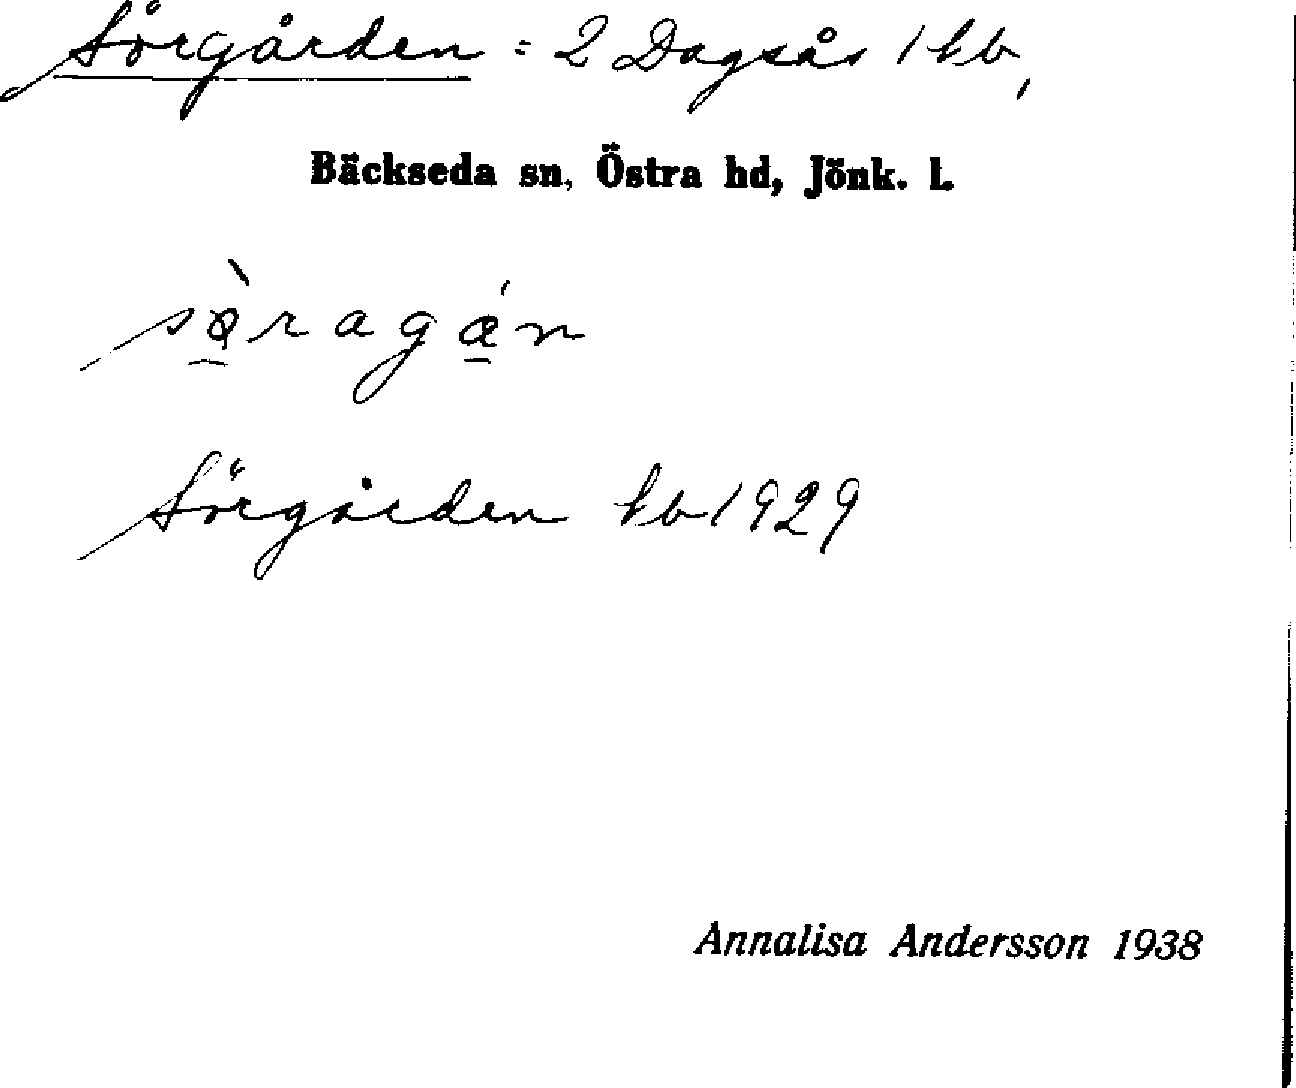 Sörgården = 2 Dagsås 1 kb,
Bäckseda sn, Östra hd, Jönk. l.
sö̀ragán
Sörgården kb 1929
Annalisa Andersson 1938